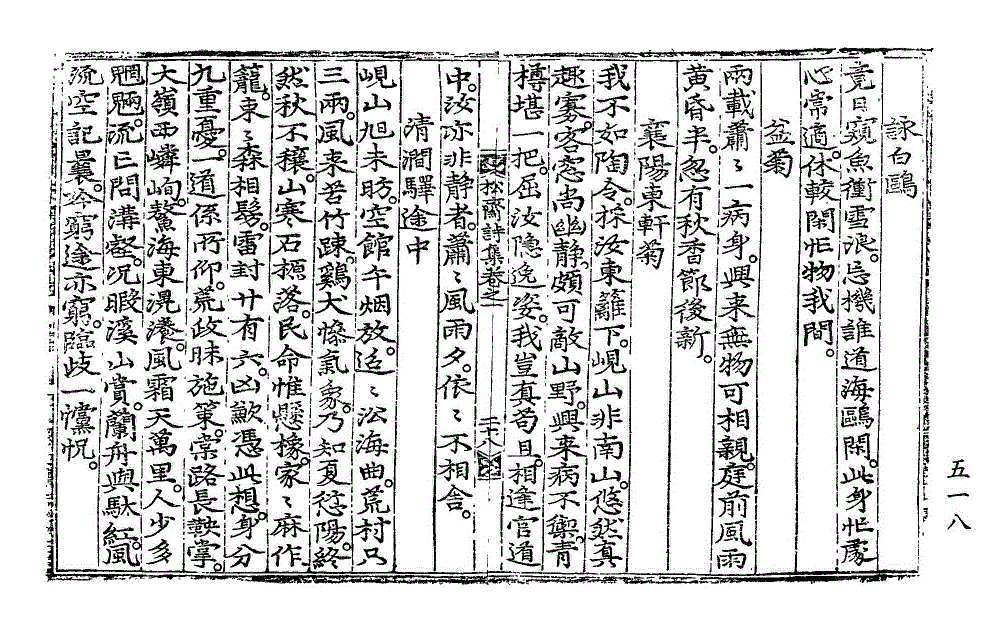 詠白鷗
竟日窺魚衝雪浪忘機誰道海鷗閑此身忙處
心常適休較閑忙物我間
盆菊
兩載蕭〻一病身興來無物可相親庭前風雨
黃昏半忽有秋香節後新
襄陽東軒菊
我不如陶令採汝東籬下峴山非南山悠然真
趣寡客窓尚幽靜頗可敵山野興來病不禦靑
樽堪一把屈汝隱逸姿我豈真苟且相逢官道
中汝亦非靜者蕭〻風雨夕依〻不相舍
松齋詩集卷之一
二十八
淸澗驛途中
峴山旭未昉空館午烟放迢〻沿海曲荒村只
三兩風来苦竹疎鷄犬慘氣象乃知夏愆陽終
然秋不穰山寒石摽落民命惟懸橡家〻麻作
籠束〻森相髣雷封廿有六凶歉憑此想身分
九重憂一道係所仰荒政昧施策棠路長鞅掌
大嶺西嶙峋鰲海東滉瀁風霜天萬里人少多
魍魎流亡問溝壑况暇溪山賞蘭舟與馱紅風
流空記曩吟窮途亦窮臨歧一懭怳
五一八